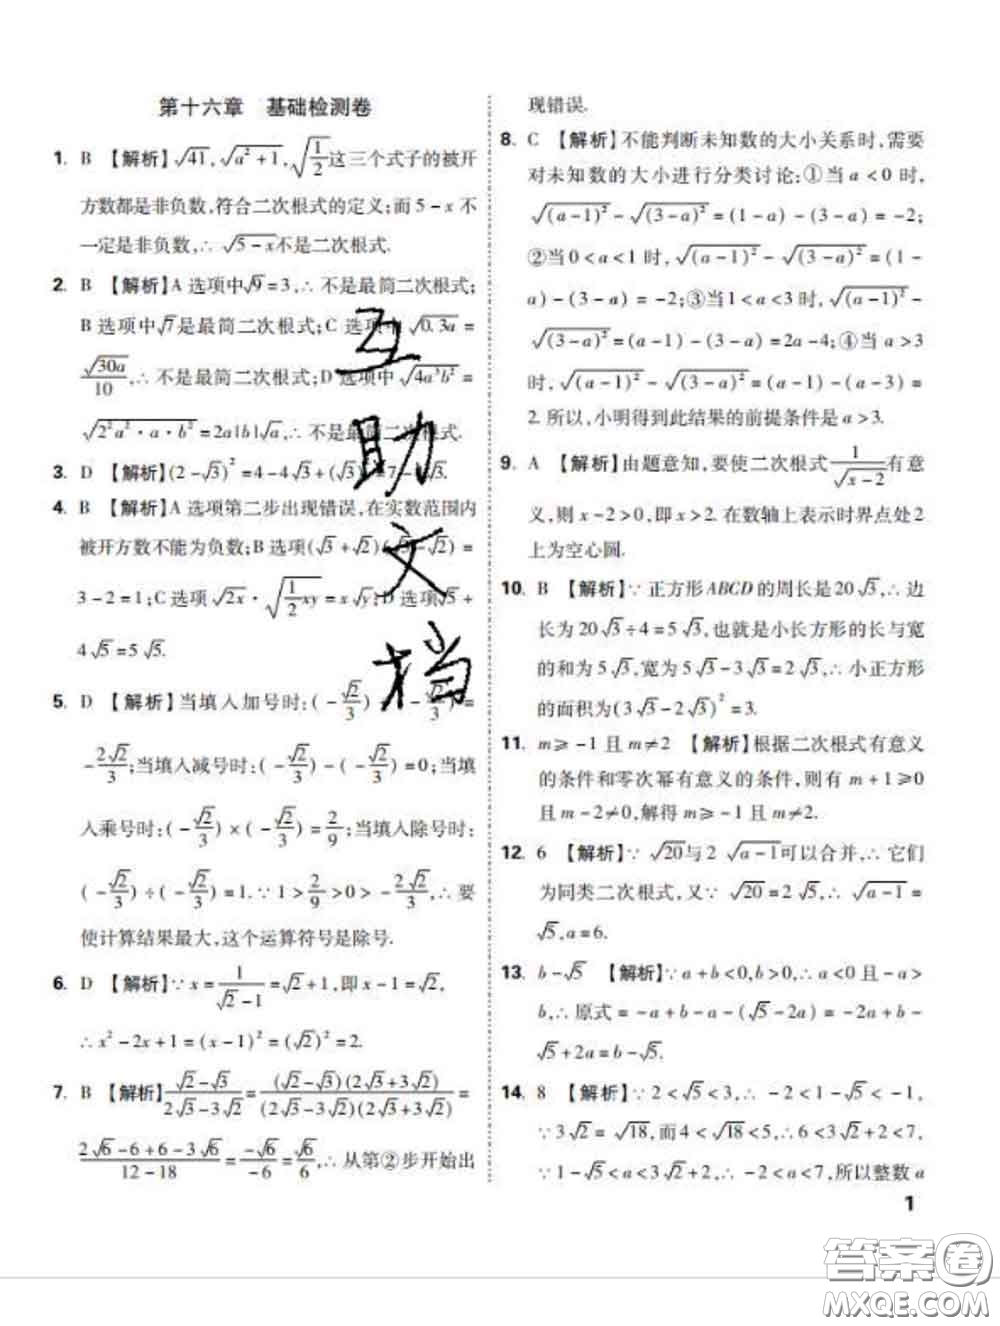 第十六章 基础检测卷
1. B 【解析】√41, √(a²+1), √(1/2)这三个式子的被开
方数都是非负数,符合二次根式的定义;而5-x不
一定是非负数,∴ √(5-x)不是二次根式.
2. B 【解析】A选项中√9=3,∴ 不是最简二次根式;
B选项中√7是最简二次根式;C选项中√(0.3a)=
√(30a)/10,∴ 不是最简二次根式;D选项中√(4a³b²)=
√(2²a²·a·b²)=2a|b|√a,∴ 不是最简二次根式.
3. D 【解析】(2-√3)²=4-4√3+(√3)²=7-4√3.
4. B 【解析】A选项第二步出现错误,在实数范围内
被开方数不能为负数;B选项(√3+√2)(√3-√2)=
3-2=1;C选项√(2x)·√(1/2 xy)=x√y;D选项√5+
4√5=5√5.
5. D 【解析】当填入加号时:(-√2/3)+(-√2/3)=
-2√2/3;当填入减号时:(-√2/3)-(-√2/3)=0;当填
入乘号时:(-√2/3)×(-√2/3)=2/9;当填入除号时:
(-√2/3)÷(-√2/3)=1.∵1>2/9>0>-2√2/3,∴ 要
使计算结果最大,这个运算符号是除号.
6. D 【解析】∵x=1/(√2-1)=√2+1,即x-1=√2,
∴x²-2x+1=(x-1)²=(√2)²=2.
7. B 【解析】(√2-√3)/(2√3-3√2)=(√2-√3)(2√3+3√2)/(2√3-3√2)(2√3+3√2)=
(2√6-6+6-3√6)/(12-18)=-√6/-6=√6/6,∴ 从第②步开始出
现错误.
8. C 【解析】不能判断未知数的大小关系时,需要
对未知数的大小进行分类讨论:①当a<0时,
√(a-1)²-√(3-a)²=(1-a)-(3-a)=-2;
②当0<a<1时,√(a-1)²-√(3-a)²=(1-
a)-(3-a)=-2;③当1<a<3时,√(a-1)²-
√(3-a)²=(a-1)-(3-a)=2a-4;④当a>3
时,√(a-1)²-√(3-a)²=(a-1)-(a-3)=
2. 所以,小明得到此结果的前提条件是a>3.
9. A 【解析】由题意知,要使二次根式1/√(x-2)有意
义,则x-2>0,即x>2. 在数轴上表示时界点处2
上为空心圆.
10. B 【解析】∵正方形ABCD的周长是20√3,∴ 边
长为20√3÷4=5√3,也就是小长方形的长与宽
的和为5√3,宽为5√3-3√3=2√3,∴ 小正方形
的面积为(3√3-2√3)²=3.
11. m≥-1且m≠2 【解析】根据二次根式有意义
的条件和零次幂有意义的条件,则有m+1≥0
且m-2≠0,解得m≥-1且m≠2.
12. 6 【解析】∵√20与2√(a-1)可以合并,∴ 它们
为同类二次根式,又∵√20=2√5,∴√(a-1)=
√5,a=6.
13. b-√5 【解析】∵a+b<0,b>0,∴a<0且-a>
b,∴ 原式=-a+b-a-(√5-2a)=-2a+b-
√5+2a=b-√5.
14. 8 【解析】∵2<√5<3,∴-2<1-√5<-1,
∵3√2=√18,而4<√18<5,∴6<3√2+2<7,
∵1-√5<a<3√2+2,∴-2<a<7,所以整数a
1
互
助
文
档
答案卷
MXQE.COM